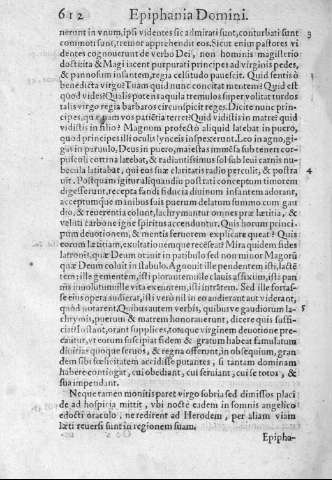 612 Epiphania Domini.
nerunt in vnum, ipsi videntes sic admirati sunt, conturbati sunt 3
commoti sunt, tremor apprehendit eos. Sicut enim pastores vi
dentes cognouerunt de verbo Dei, non hominis magisterio
docti ita & Magi iacent purpurati principes ad virginis pedes,
& pannosum infantem, regia celsitudo pauescit. Quid sentis ô
benedicta virgo? Tuam quid nunc concitat mentem? Quid est
quod vides? Qualis potentia qua tremulos super volitat turdos
talis virgo regia barbaros circunspicit reges. Dicite nunc prin-
cipes, quænam vos patiētia terret? Quid vidistis in matre? quid
vidistis in filio? Magnum profectò aliquid latebat in puero,
quod principes illi oculis lynceis inspexerunt. Leo in agno, gi-
gas in paruulo, Deus in puero, maiestas immēsa sub teneri cor-
pusculi cortina latebat, & radiantissimus sol sub leui carnis nu-
becula latitabat, qui eos suæ claritatis radio perculit, & postra 4
uit. Postquam igitur aliquandiu postrati conceptum timorem
digesserunt, recepta sancti fiducia diuinum infantem adorant,
acceptumque manibus suis puerum delatum summo cum gau
dio, & reuerentia colunt, lachrymantur omnes præ lætitia, &
veluti carbone igne spiritus accenduntur. Quis horum princi-
pum deuotionem, & mentis feruorem explicare queat? Quis
eorum lætitiam, exultationemque recēseat? Mira quidem fides
latronis, quæ Deum orauit in patibulo sed non minor Magorū
quæ Deum coluit in stabulo. Agnouit ille pendentem isti, lactē-
tem: ille gementem, isti plorantem: ille clauis affixum, isti pan-
nis inuolutum: ille vita exeuntem, isti intrātem. Sed ille fortas-
se eius opera audierat, isti verò nil in eo audierant aut viderāt,
quod notarent. Quibus autem verbis, quibusve gaudiorum la- 5
chrymis, puerum & matrem honorauerunt, dicere quis suffi-
ciat? Instant, orant supplices, totaque virginem deuotione pre-
cantur, vt eorum suscipiat fidem & gratum habeat famulatum
diuitias quoque seruos, & regna offerunt, in obsequium, gran
dem sibi fœlicitatem accidisse putantes, si tantam dominam
habere contingat, cui obediant, cui seruiant, cui se totos, &
sua impendant.
Neque tamen monitis paret virgo sarbia sed dimissos placi
de ad hospitia mittit, vbi nocte eadem in somnis angelico
edocti oraculo, ne redirent ad Herodem, per aliam viam
læti reuersi sunt in regionem suam.
Epipha-